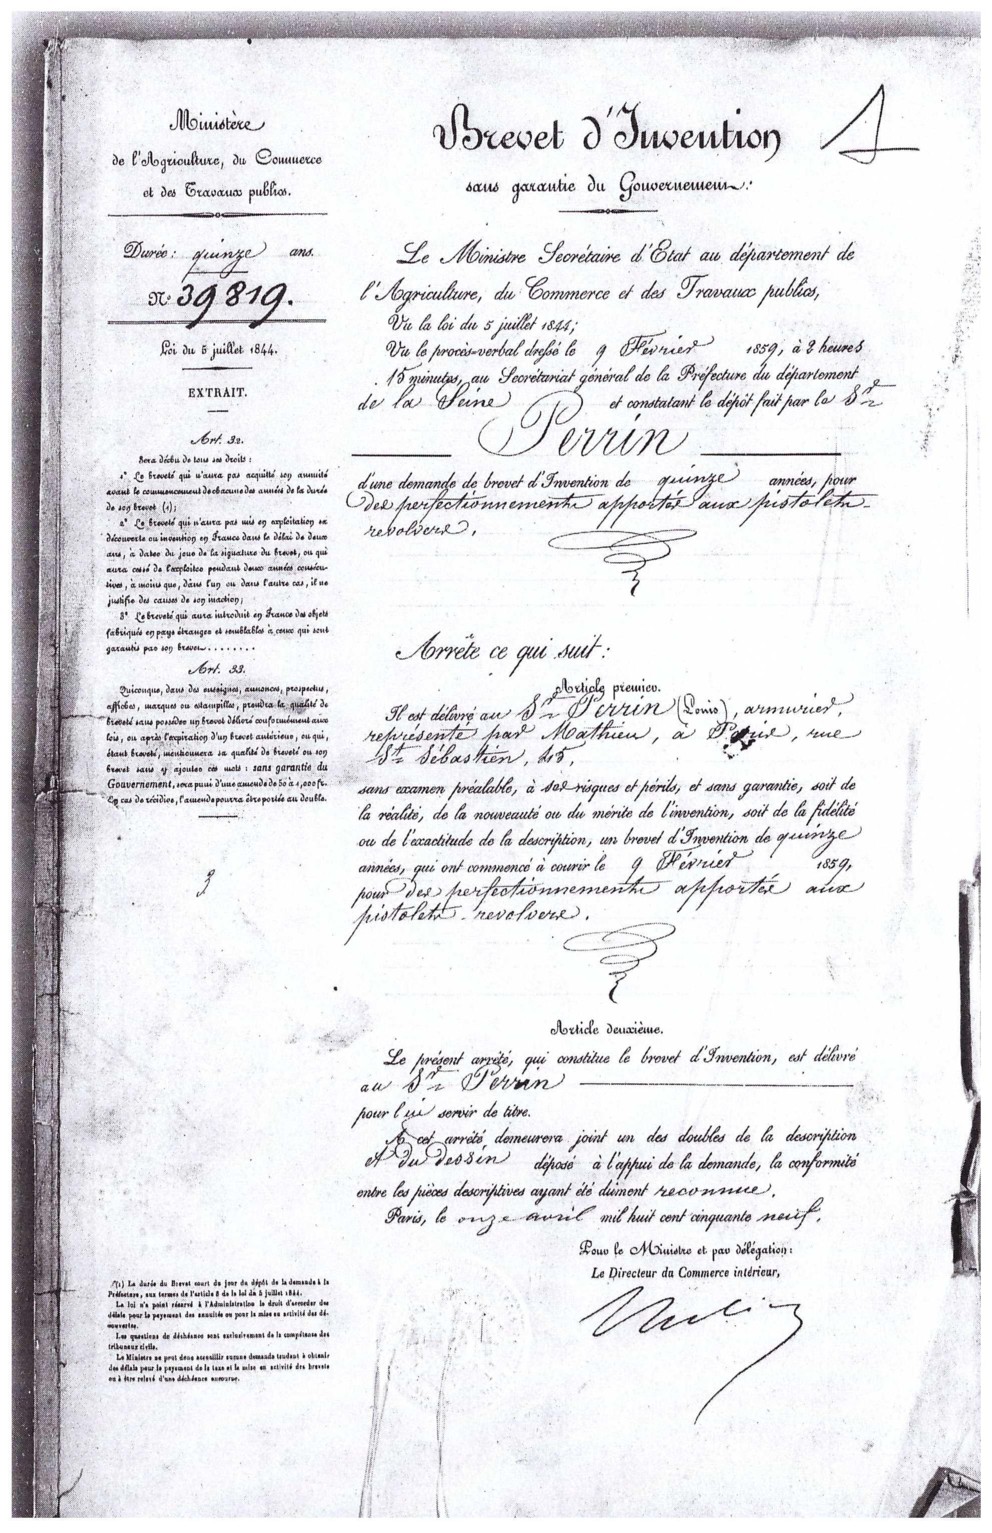 Ministère
de l'Agriculture, du Commerce
et des Travaux publics.
Durée : quinze ans.
N° 39819.
Loi du 5 juillet 1844.
EXTRAIT.
Art. 32.
Sera déchu de tous ses droits :
1° Le breveté qui n'aura pas acquitté son annuité
avant le commencement de chacune des années de la durée
de son brevet (1);
2° Le breveté qui n'aura pas mis en exploitation sa
découverte ou invention en France dans le délai de deux
ans, à dater du jour de la signature du brevet, ou qui
aura cessé de l'exploiter pendant deux années consécu-
tives, à moins que, dans l'un ou dans l'autre cas, il ne
justifie des causes de son inaction;
3° Le breveté qui aura introduit en France des objets
fabriqués en pays étranger et semblables à ceux qui sont
garantis par son brevet........
Art. 33.
Quiconque, dans des enseignes, annonces, prospectus,
affiches, marques ou estampilles, prendra la qualité de
breveté sans posséder un brevet délivré conformément aux
lois, ou après l'expiration d'un brevet antérieur, ou qui,
étant breveté, mentionnera sa qualité de breveté ou son
brevet sans y ajouter ces mots : sans garantie du
Gouvernement, sera puni d'une amende de 50 à 1,000 fr.
En cas de récidive, l'amende pourra être portée au double.
(1) La durée du Brevet court du jour du dépôt de la demande à la
Préfecture, aux termes de l'article 8 de la loi du 5 juillet 1844.
La loi n'a point réservé à l'Administration le droit d'accorder des
délais pour le payement des annuités ou pour la mise en activité des dé-
couvertes.
Les questions de déchéance sont exclusivement de la compétence des
tribunaux civils.
Le Ministre ne peut donc accueillir aucune demande tendant à obtenir
des délais pour le payement de la taxe et la mise en activité des brevets
ou à être relevé d'une déchéance encourue.
Brevet d'Invention
1
sans garantie du Gouvernement.
Le Ministre Secrétaire d'État au département de
l'Agriculture, du Commerce et des Travaux publics,
Vu la loi du 5 juillet 1844;
Vu le procès-verbal dressé le 9 Février 1859, à 2 heures
15 minutes, au Secrétariat général de la Préfecture du département
de la Seine et constatant le dépôt fait par le Sr
Perrin
d'une demande de brevet d'Invention de quinze années, pour
des perfectionnements apportés aux pistolets-
revolvers.
Arrête ce qui suit :
Article premier.
Il est délivré au Sr Perrin (Louis), armurier,
représenté par Mathieu, à Paris, rue
St Sébastien, 45,
sans examen préalable, à ses risques et périls, et sans garantie, soit de
la réalité, de la nouveauté ou du mérite de l'invention, soit de la fidélité
ou de l'exactitude de la description, un brevet d'Invention de quinze
années, qui ont commencé à courir le 9 Février 1859,
pour des perfectionnements apportés aux
pistolets-revolvers.
Article deuxième.
Le présent arrêté, qui constitue le brevet d'Invention, est délivré
au Sr Perrin
pour lui servir de titre.
A cet arrêté demeurera joint un des doubles de la description
et du dessin déposé à l'appui de la demande, la conformité
entre les pièces descriptives ayant été dûment reconnue.
Paris, le onze avril mil huit cent cinquante neuf.
Pour le Ministre et par délégation :
Le Directeur du Commerce intérieur,